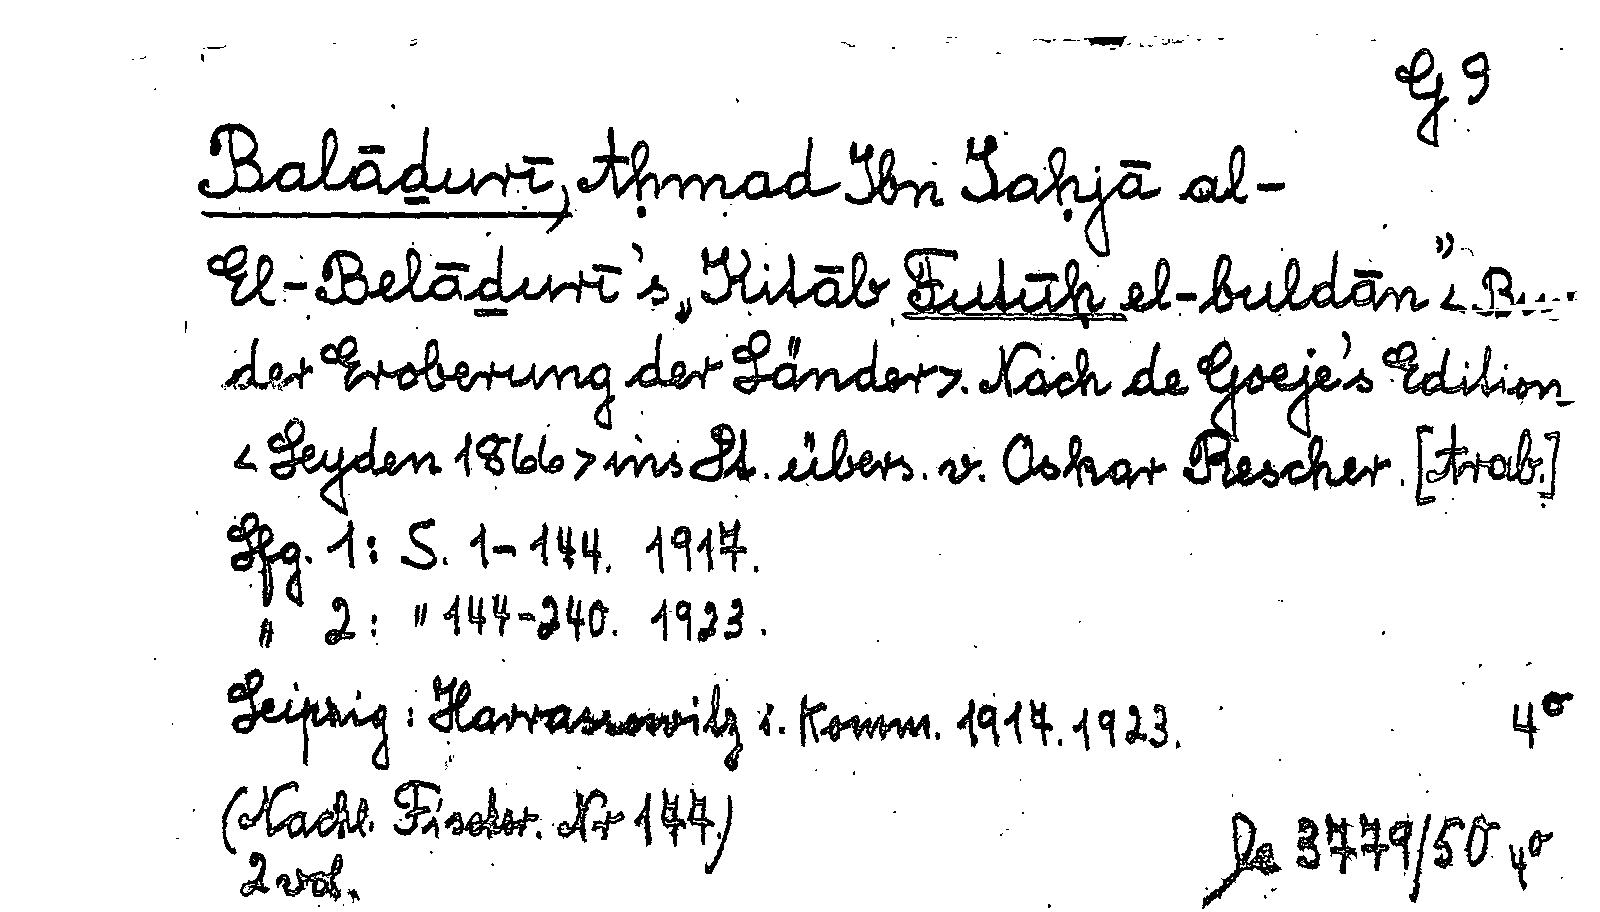 G 9
Balāḏurī, Aḥmad Ibn Jaḥjā al-
El-Belāḏurī's „Kitāb Futūḥ el-buldān” <B...
der Eroberung der Länder>. Nach de Goeje's Edition
<Leyden 1866> ins Dt. übers. v. Oskar Rescher. [Arab.]
Lfg. 1: S. 1-144. 1917.
" 2: " 144-240. 1923.
Leipzig: Harrassowitz i. Komm. 1917. 1923. 4°
(Nachl. Fischer. Nr 177.)
2 vol.
De 3779/50 4°